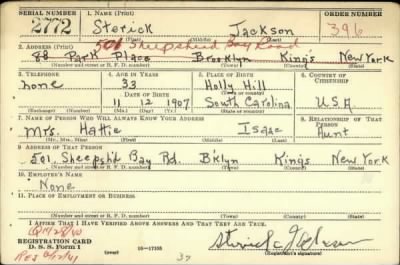 SERIAL NUMBER 1. NAME (Print) ORDER NUMBER
2772 Sterick Jackson 396
2. ADDRESS (Print) 501 Sheepshead Bay Road
88 Park Place Brooklyn King's New York
(Number and street or R. F. D. number) (Town) (County) (State)
3. TELEPHONE 4. AGE IN YEARS 5. PLACE OF BIRTH 6. COUNTRY OF CITIZENSHIP
none 33 Holly Hill
DATE OF BIRTH (Town or county)
11 12 1907 South Carolina U.S.A
(Exchange) (Number) (Mo.) (Day) (Yr.) (State or country)
7. NAME OF PERSON WHO WILL ALWAYS KNOW YOUR ADDRESS 8. RELATIONSHIP OF THAT PERSON
Mrs. Hattie Isaac Aunt
(Mr., Mrs., Miss) (First) (Middle) (Last)
9. ADDRESS OF THAT PERSON
501 Sheepsh'd Bay Rd. B'klyn King's New York
(Number and street or R. F. D. number) (Town) (County) (State)
10. EMPLOYER'S NAME
None
11. PLACE OF EMPLOYMENT OR BUSINESS
(Number and street or R. F. D. number) (Town) (County) (State)
I AFFIRM THAT I HAVE VERIFIED ABOVE ANSWERS AND THAT THEY ARE TRUE.
REGISTRATION CARD
D. S. S. Form 1 16—17105 Sterick Jackson
(Registrant's signature)
37